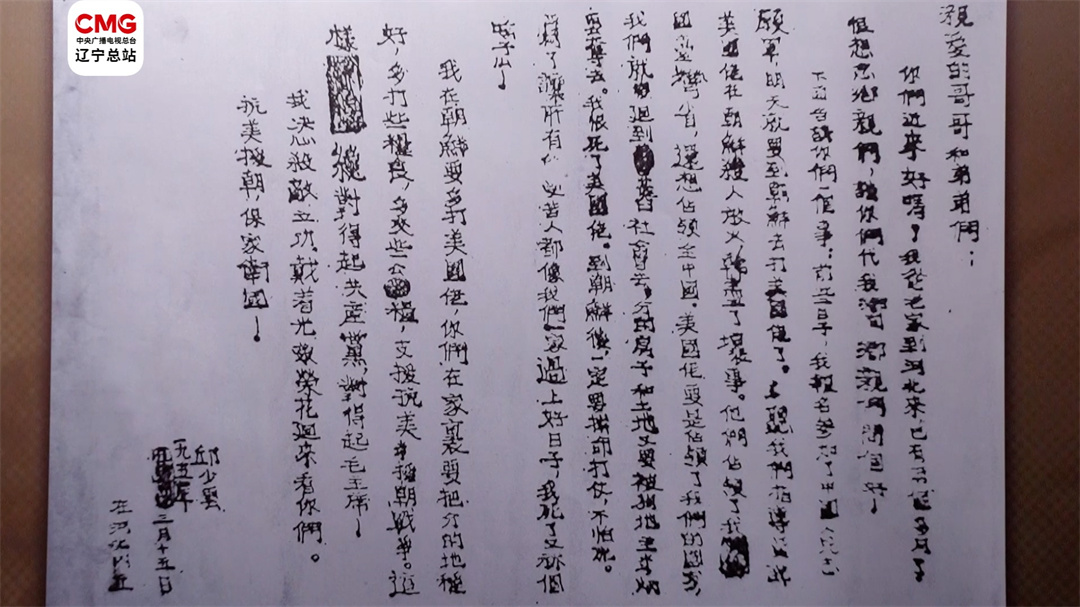 CMG
中央广播电视总台
辽宁总站
親爱的哥哥和弟弟們：
你們近来好嗎？我從老家到河北来，已有個多月了
很想念鄉親們，請你們代我向鄉親們問個好！
下面告訴你們一個事：前些日子，我報名參加了中國人民志
願軍，明天就要到朝鮮去打美國佬了。聽我們指導員講
美國佬在朝鮮殺人放火，幹盡了壞事。他們佔領了我
國台灣省，還想佔領全中國。美國佬要是佔領了我們的國家，
我們就要迴到舊社會去，分的房子和土地又要被地主老財
霸奪去。我恨死了美國佬。到朝鮮後，一定要拼命打仗，不怕死。
為了讓所有苦人都像我們家過上好日子，我死了又算個
啥子！
我在朝鮮要多打美國佬，你們在家裏要把分的地種
好，多打些糧食，多交些公糧，支援抗美援朝戰爭。這
樣纔對得起共產黨，對得起毛主席！
我决心殺敵立功，戴着光榮花迴来看你們。
抗美援朝，保家衛國！
邱少雲
一九五年
三月十五日
在河北